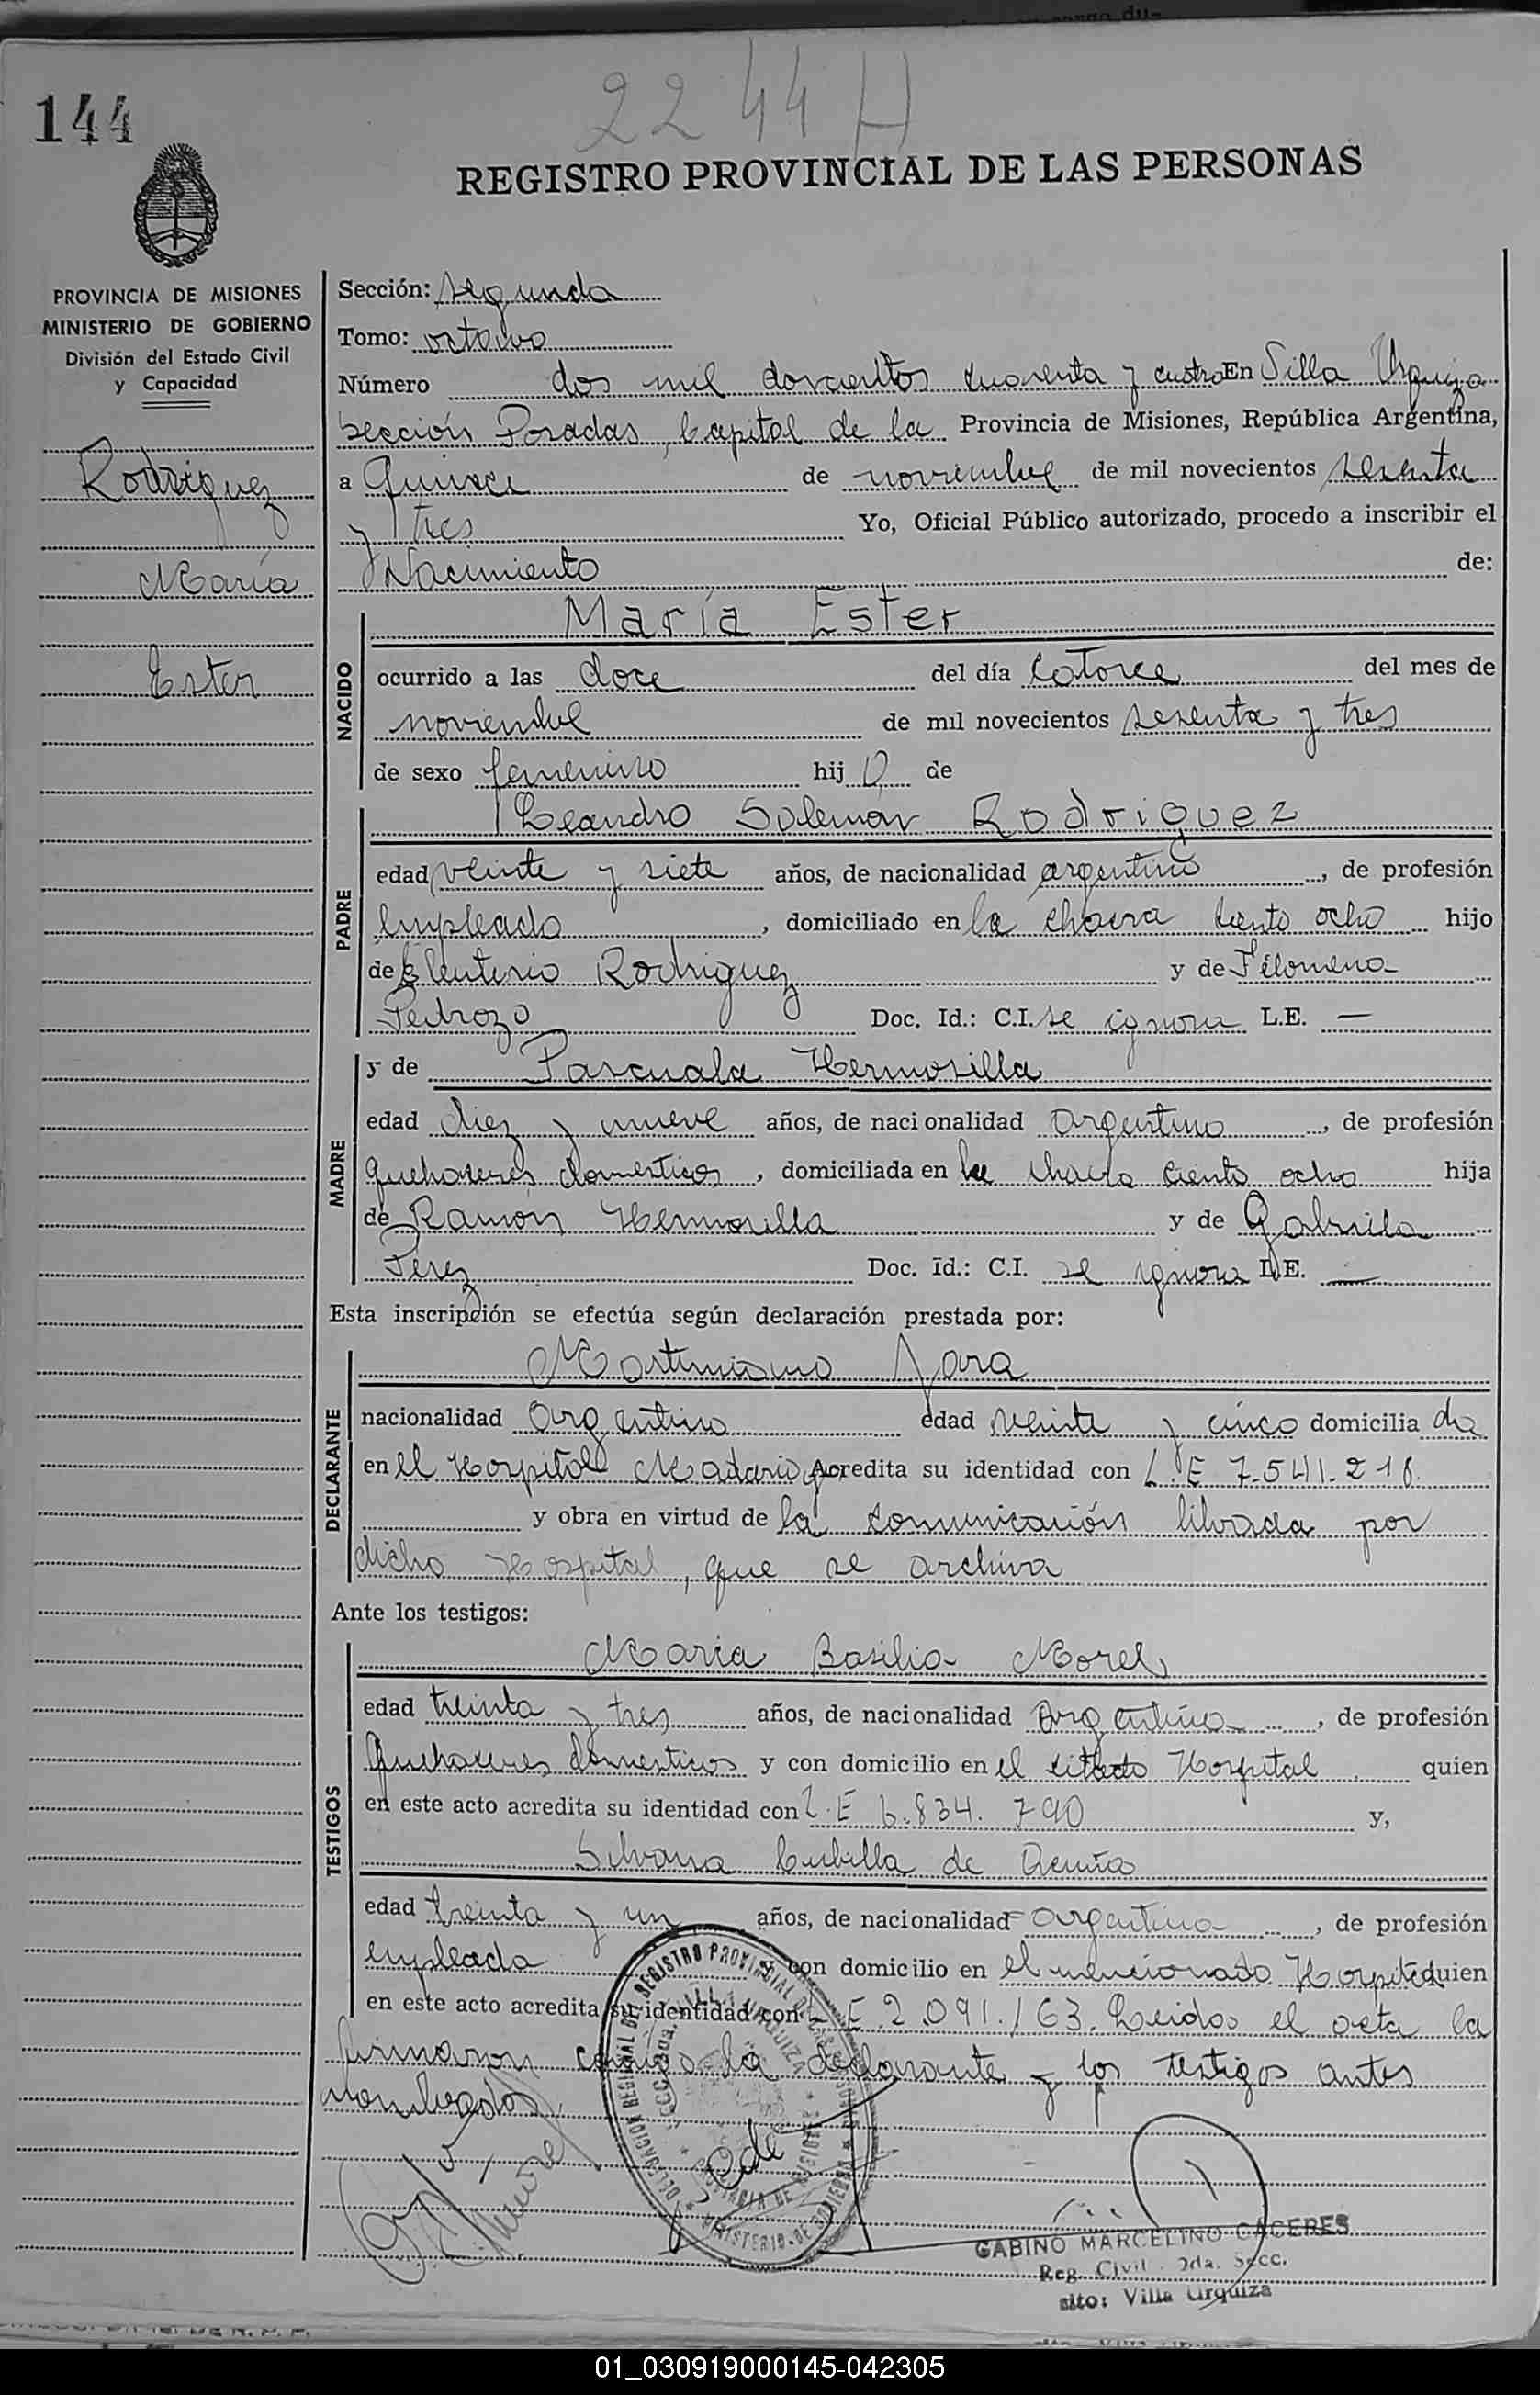 2244 H
144
REGISTRO PROVINCIAL DE LAS PERSONAS
PROVINCIA DE MISIONES
MINISTERIO DE GOBIERNO
División del Estado Civil
y Capacidad
Rodriguez
María
Ester
Sección: segunda
Tomo: octavo
Número dos mil doscientos cuarenta y cuatro En Villa Urquiza
sección Posadas, Capital de la Provincia de Misiones, República Argentina,
a Quince de noviembre de mil novecientos sesenta
y tres Yo, Oficial Público autorizado, procedo a inscribir el
Nacimiento de:
María Ester
NACIDO
ocurrido a las doce del día Catorce del mes de
noviembre de mil novecientos sesenta y tres
de sexo femenino hij a de
Leandro Solemón Rodriguez
PADRE
edad veinte y siete años, de nacionalidad argentino, de profesión
empleado, domiciliado en la chacra ciento ocho hijo
de Eleuterio Rodriguez y de Filomena
Pedrozo Doc. Id.: C.I. se ignora L.E. —
y de Pascuala Hermosilla
MADRE
edad diez y nueve años, de nacionalidad argentina, de profesión
quehaceres domesticos, domiciliada en la chacra ciento ocho hija
de Ramón Hermosilla y de Gabriela
Perez Doc. Id.: C.I. se ignora L.E. —
Esta inscripción se efectúa según declaración prestada por:
Martiniana Jara
DECLARANTE
nacionalidad argentina edad veinte y cinco domicilia da
en el Hospital Madariaga Acredita su identidad con L.E 7.541.218
y obra en virtud de la comunicación librada por
dicho Hospital, que se archiva
Ante los testigos:
María Basilia Morel
TESTIGOS
edad treinta y tres años, de nacionalidad Argentina, de profesión
Quehaceres domesticos y con domicilio en el citado Hospital quien
en este acto acredita su identidad con L.E 6.834.790 y,
Silvana Cubilla de Acuña
edad treinta y un años, de nacionalidad argentina, de profesión
empleada y con domicilio en el mencionado Hospital quien
en este acto acredita su identidad con L E 2.091.163. Leidos el acta la
firmaron conmigo la declarante y los testigos antes
nombrados
DELEGACION REGIONAL DEL REGISTRO PROVINCIAL DE LAS PERSONAS
MINISTERIO DE GOBIERNO
VILLA URQUIZA
PROVINCIA DE MISIONES
GABINO MARCELINO CACERES
Reg. Civil 2da. Secc.
sito: Villa Urquiza
01_030919000145-042305